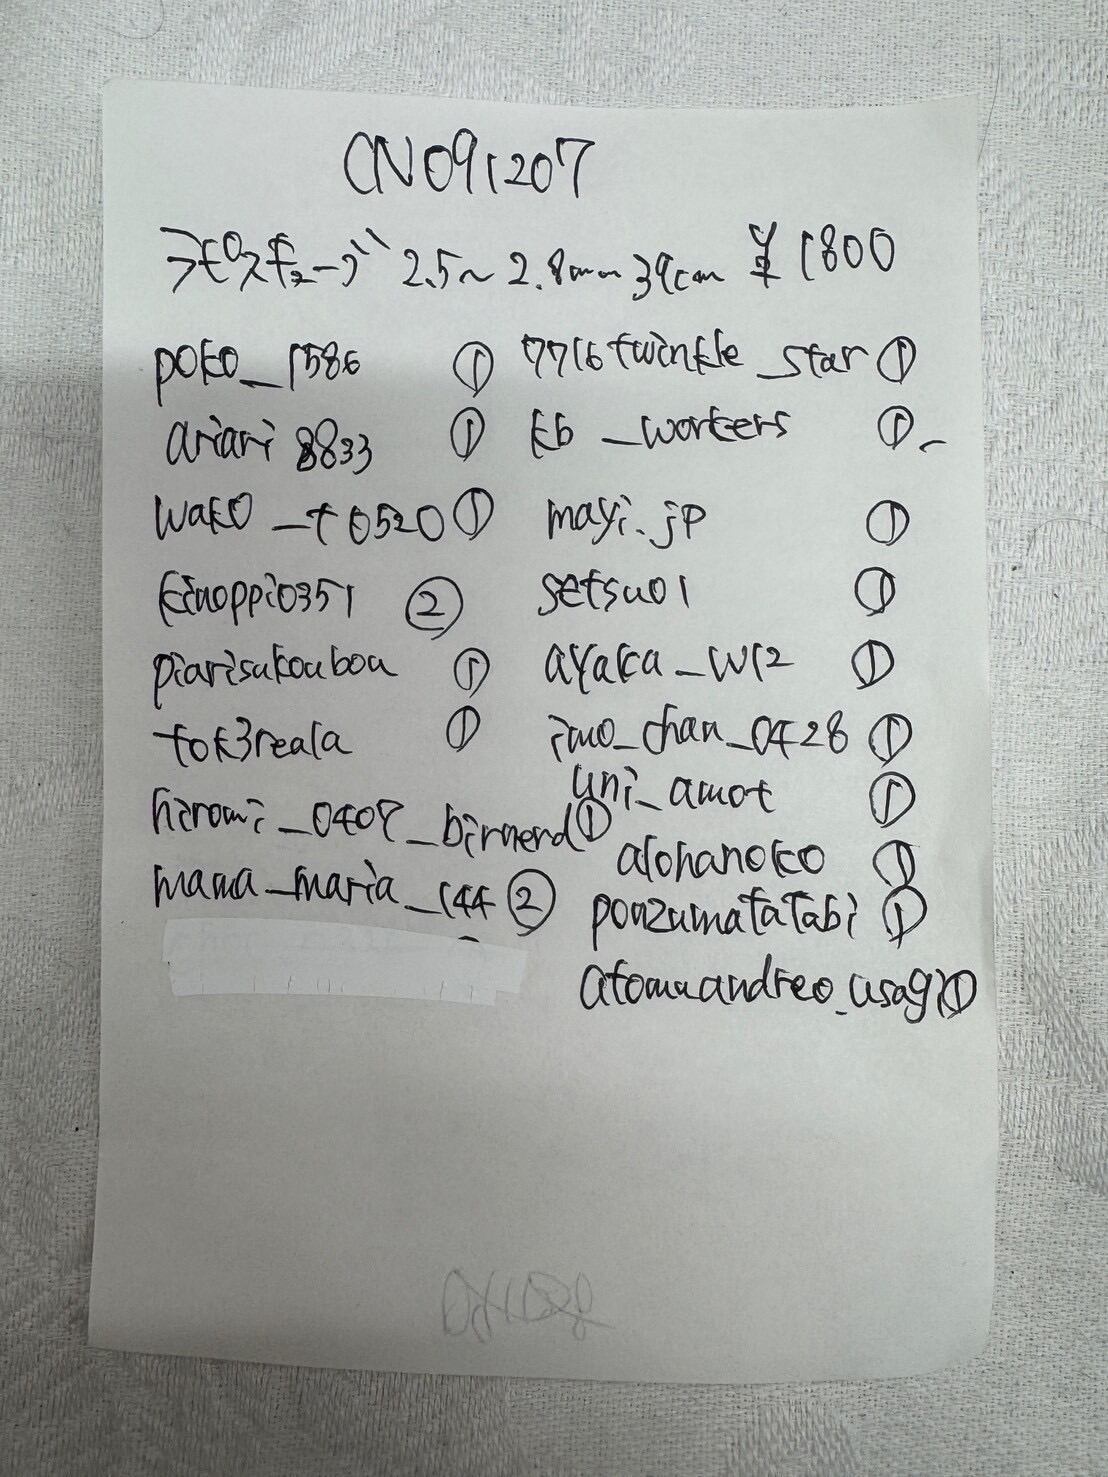 CN091207
ラピスチューブ 2.5~2.8mm 39cm ¥1800
poko_1586 ①
ariari 8833 ①
wako_t0520 ①
kinoppi0351 ②
piarisukoubou ①
tok3reala ①
hiromi_0407_birnerd ①
mama_maria_144 ②
7716twinkle_star ①
kb_workers ①
mayi.jp ①
setsu01 ①
ayaka_w12 ①
imo_chan_0428 ①
uni_amot ①
alohanoko ①
ponzumatatabi ①
atomuandreo_usagi ①